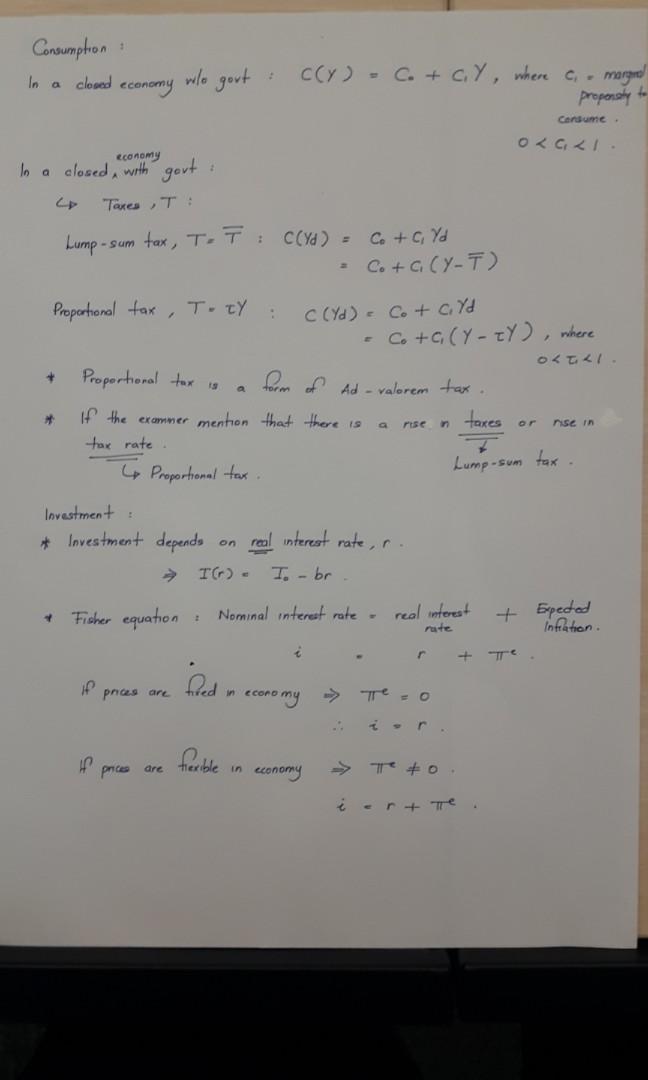 Consumption :
In a closed economy w/o govt : C(Y) = C₀ + C₁Y, where C₁ = marginal
propensity to
consume.
0 < C₁ < 1.
In a closed economy with govt :
↳ Taxes, T :
Lump-sum tax, T = T̅ : C(Yd) = C₀ + C₁Yd
= C₀ + C₁(Y - T̅)
Proportional tax, T = τY : C(Yd) = C₀ + C₁Yd
= C₀ + C₁(Y - τY), where
0 < τ < 1.
* Proportional tax is a form of Ad-valorem tax.
* If the examiner mention that there is a rise in taxes or rise in
tax rate.
↓
↳ Proportional tax. Lump-sum tax.
Investment :
* Investment depends on real interest rate, r.
⇒ I(r) = I₀ - br.
* Fisher equation : Nominal interest rate = real interest rate + Expected Inflation.
i = r + πᵉ.
If prices are fixed in economy ⇒ πᵉ = 0
∴ i = r.
If prices are flexible in economy ⇒ πᵉ ≠ 0.
i = r + πᵉ.